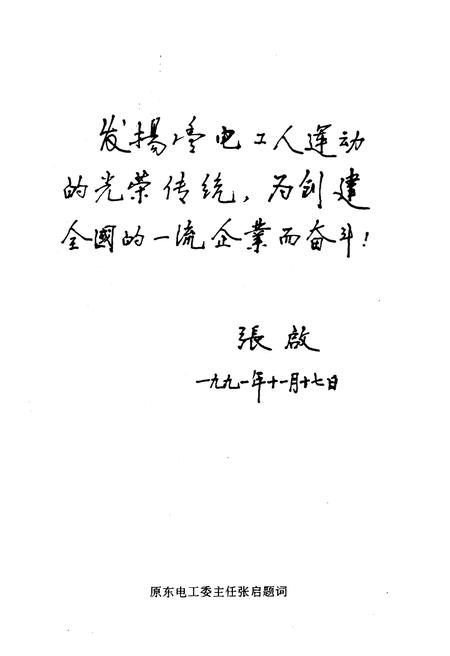 发揚电工人運动
的光荣传统，为创建
全國的一流企業而奋斗！
張啟
一九九一年十一月十七日
原东电工委主任张启题词